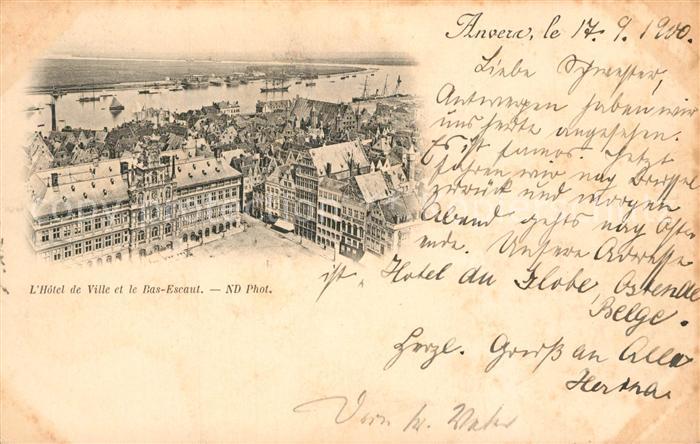 Anvers, le 17. 9. 1900.
Liebe Schwester,
Antwerpen haben wir
uns heute angesehen.
Es ist famos. Jetzt
fahren wir nach Brüssel
zurück und morgen
Abend gehts nach Ost-
ende. Unsere Adresse
ist Hotel du Globe, Ostende
Belge.
Herzl. Gruß an Alle
Hertha.
L'Hôtel de Ville et le Bas-Escaut. — ND Phot.